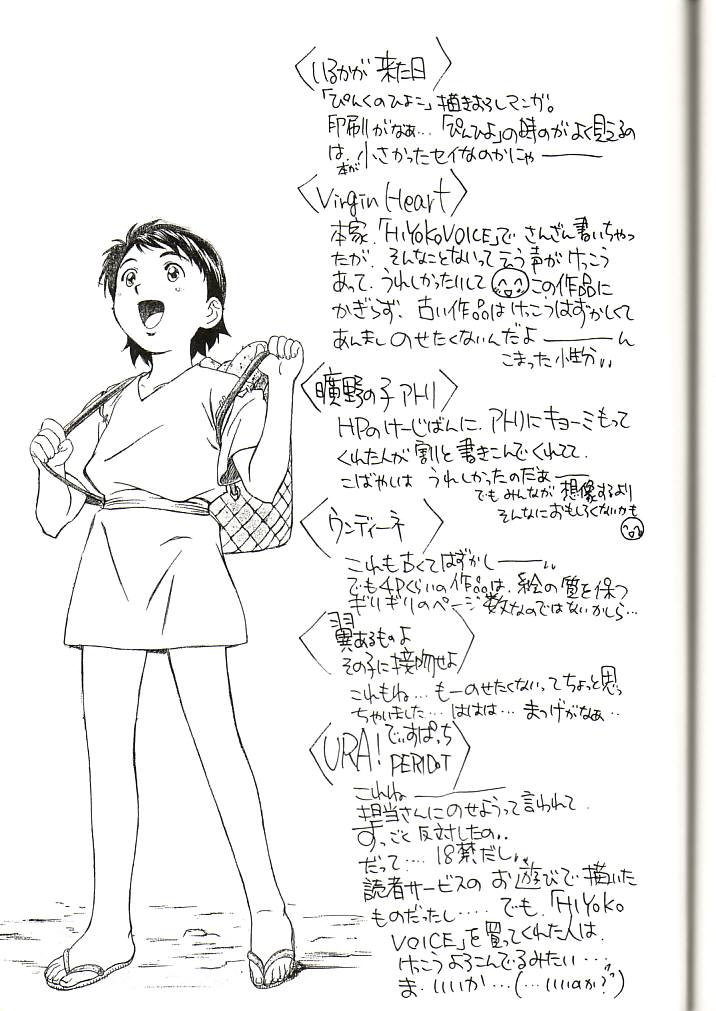 いるかが 来た日
「ぴんくのひよこ」描きおろしマンガ。
印刷がなぁ…「ぴんひよ」の時のがよく見えるの
は、本が小さかったセイなのかにゃ———
Virgin Heart
本家.「HiYoKoVOICE」で さんざん書いちゃっ
たが、そんなことないって言う声がけっこう
あって、うれしかったりして この作品に
かぎらず、古い作品はけっこうはずかしくて
あんましのせたくないんだよ———ん
こまった小性分
曠野の子 アハリ
HPのけーじばんに、アハリにキョーミもって
くれた人が割と書きこんでくれてて、
こばやしは うれしかったのだぁ—
でもみんなが想像するより
そんなにおもしろくないかも
ウンディーネ
これも古くてはずかし———
でも4Pくらいの作品は、絵の質を保つ
ギリギリのページ数なのではないかしら…
翼あるものよ
その子に接吻せよ
これもね… もーのせたくないってちょっと思っ
ちゃいました… ははは… まつげがなぁ‥
URA! でぃすぱっち
PERIDOT
これね———
担当さんにのせようって言われて、
すっごく反対したの
だって… 18禁だし
読者サービスの お遊びで描いた
ものだったし…. でも、「HIYOKO
VOICE」を買ってくれた人は、
けっこうよろこんでるみたい…
ま、いいか…(…いいのか?)